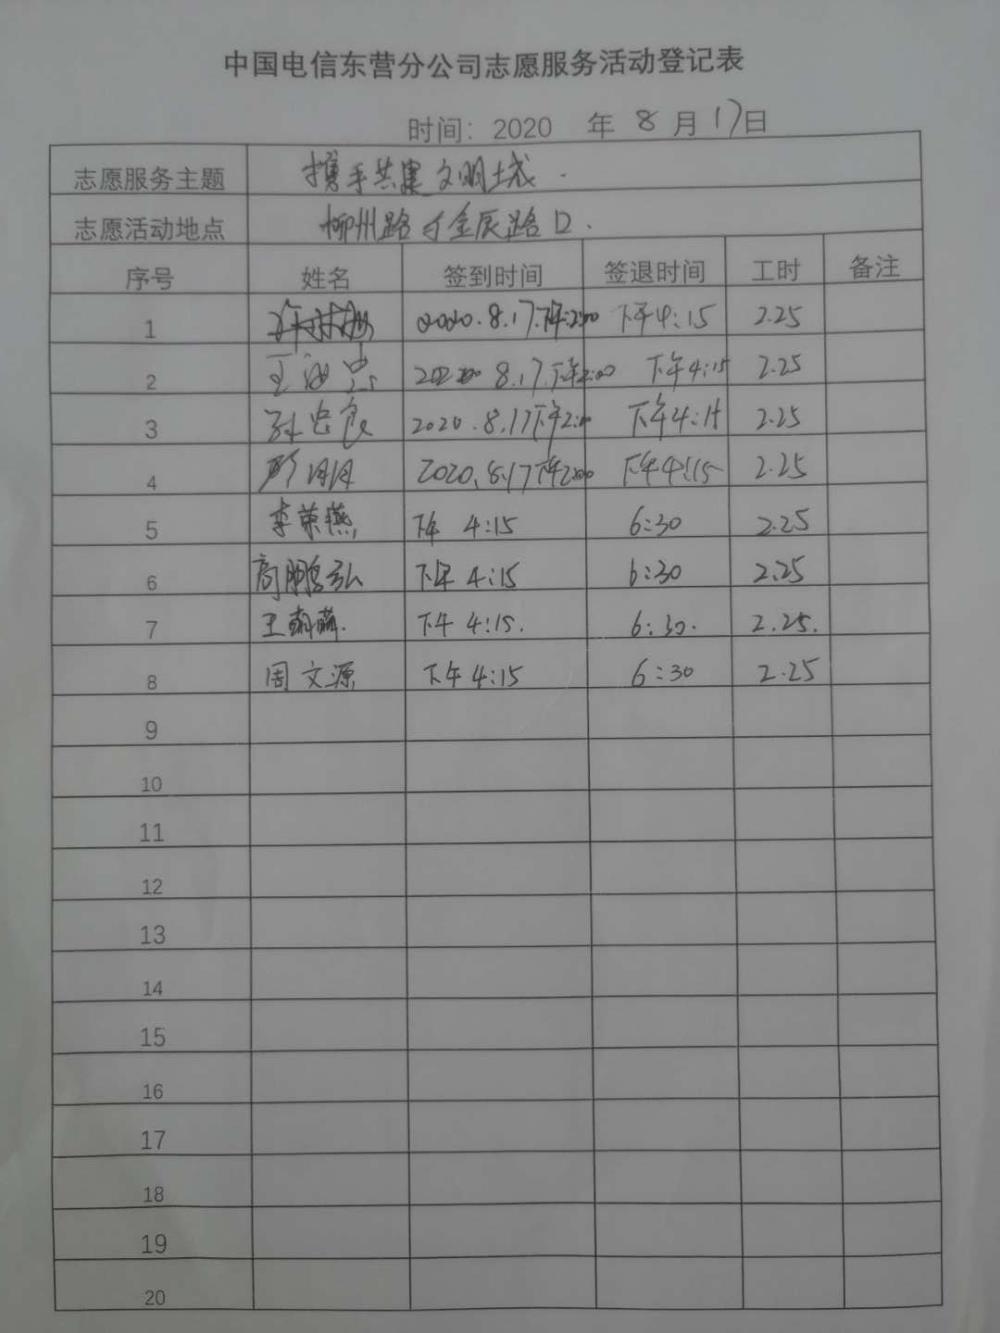 中国电信东营分公司志愿服务活动登记表
时间：2020 年 8 月 17日
志愿服务主题 携手共建文明城.
志愿活动地点 柳州路与金辰路口.
序号 姓名 签到时间 签退时间 工时 备注
1 2020.8.17.下午2:00 下午4:15 2.25
2 8.17.下午2:00 下午4:15 2.25
3 孙忠良 2020.8.17下午2:00 下午4:15 2.25
4 2020.8.17下午2:00 下午4:15 2.25
5 李荣燕 下午 4:15 6:30 2.25
6 商鹏弘 下午 4:15 6:30 2.25
7 王 下午 4:15. 6:30. 2.25.
8 周文源 下午4:15 6:30 2.25
9
10
11
12
13
14
15
16
17
18
19
20